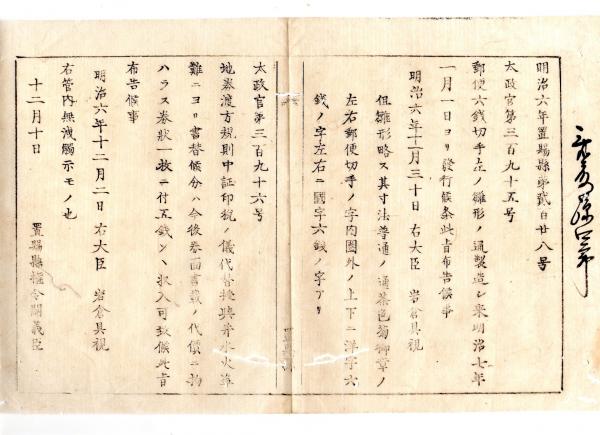 明治六年置賜縣第貳百廿八号
太政官第三百九十五号
郵便六錢切手左ノ雛形ノ通製造シ來明治七年
一月一日ヨリ發行候条此旨布告候事
明治六年十一月三十日 右大臣 岩倉具視
但雛形略ス其寸法普通ノ通茶色菊御章ノ
左右郵便切手ノ字内圏外ノ上下ニ洋字六
錢ノ字左右ニ國字六錢ノ字アリ
太政官第三百九十六号
地券渡方規則中証印税ノ儀代替授與并水火等
難ニヨリ書替候分ハ今後券面書載ノ代價ニ拘
ハラス券狀一枚ニ付五錢ツヽ收入可致候此旨
布告候事
明治六年十二月二日 右大臣 岩倉具視
右管内無洩觸示モノ也
十二月十日
置賜縣權令關義臣